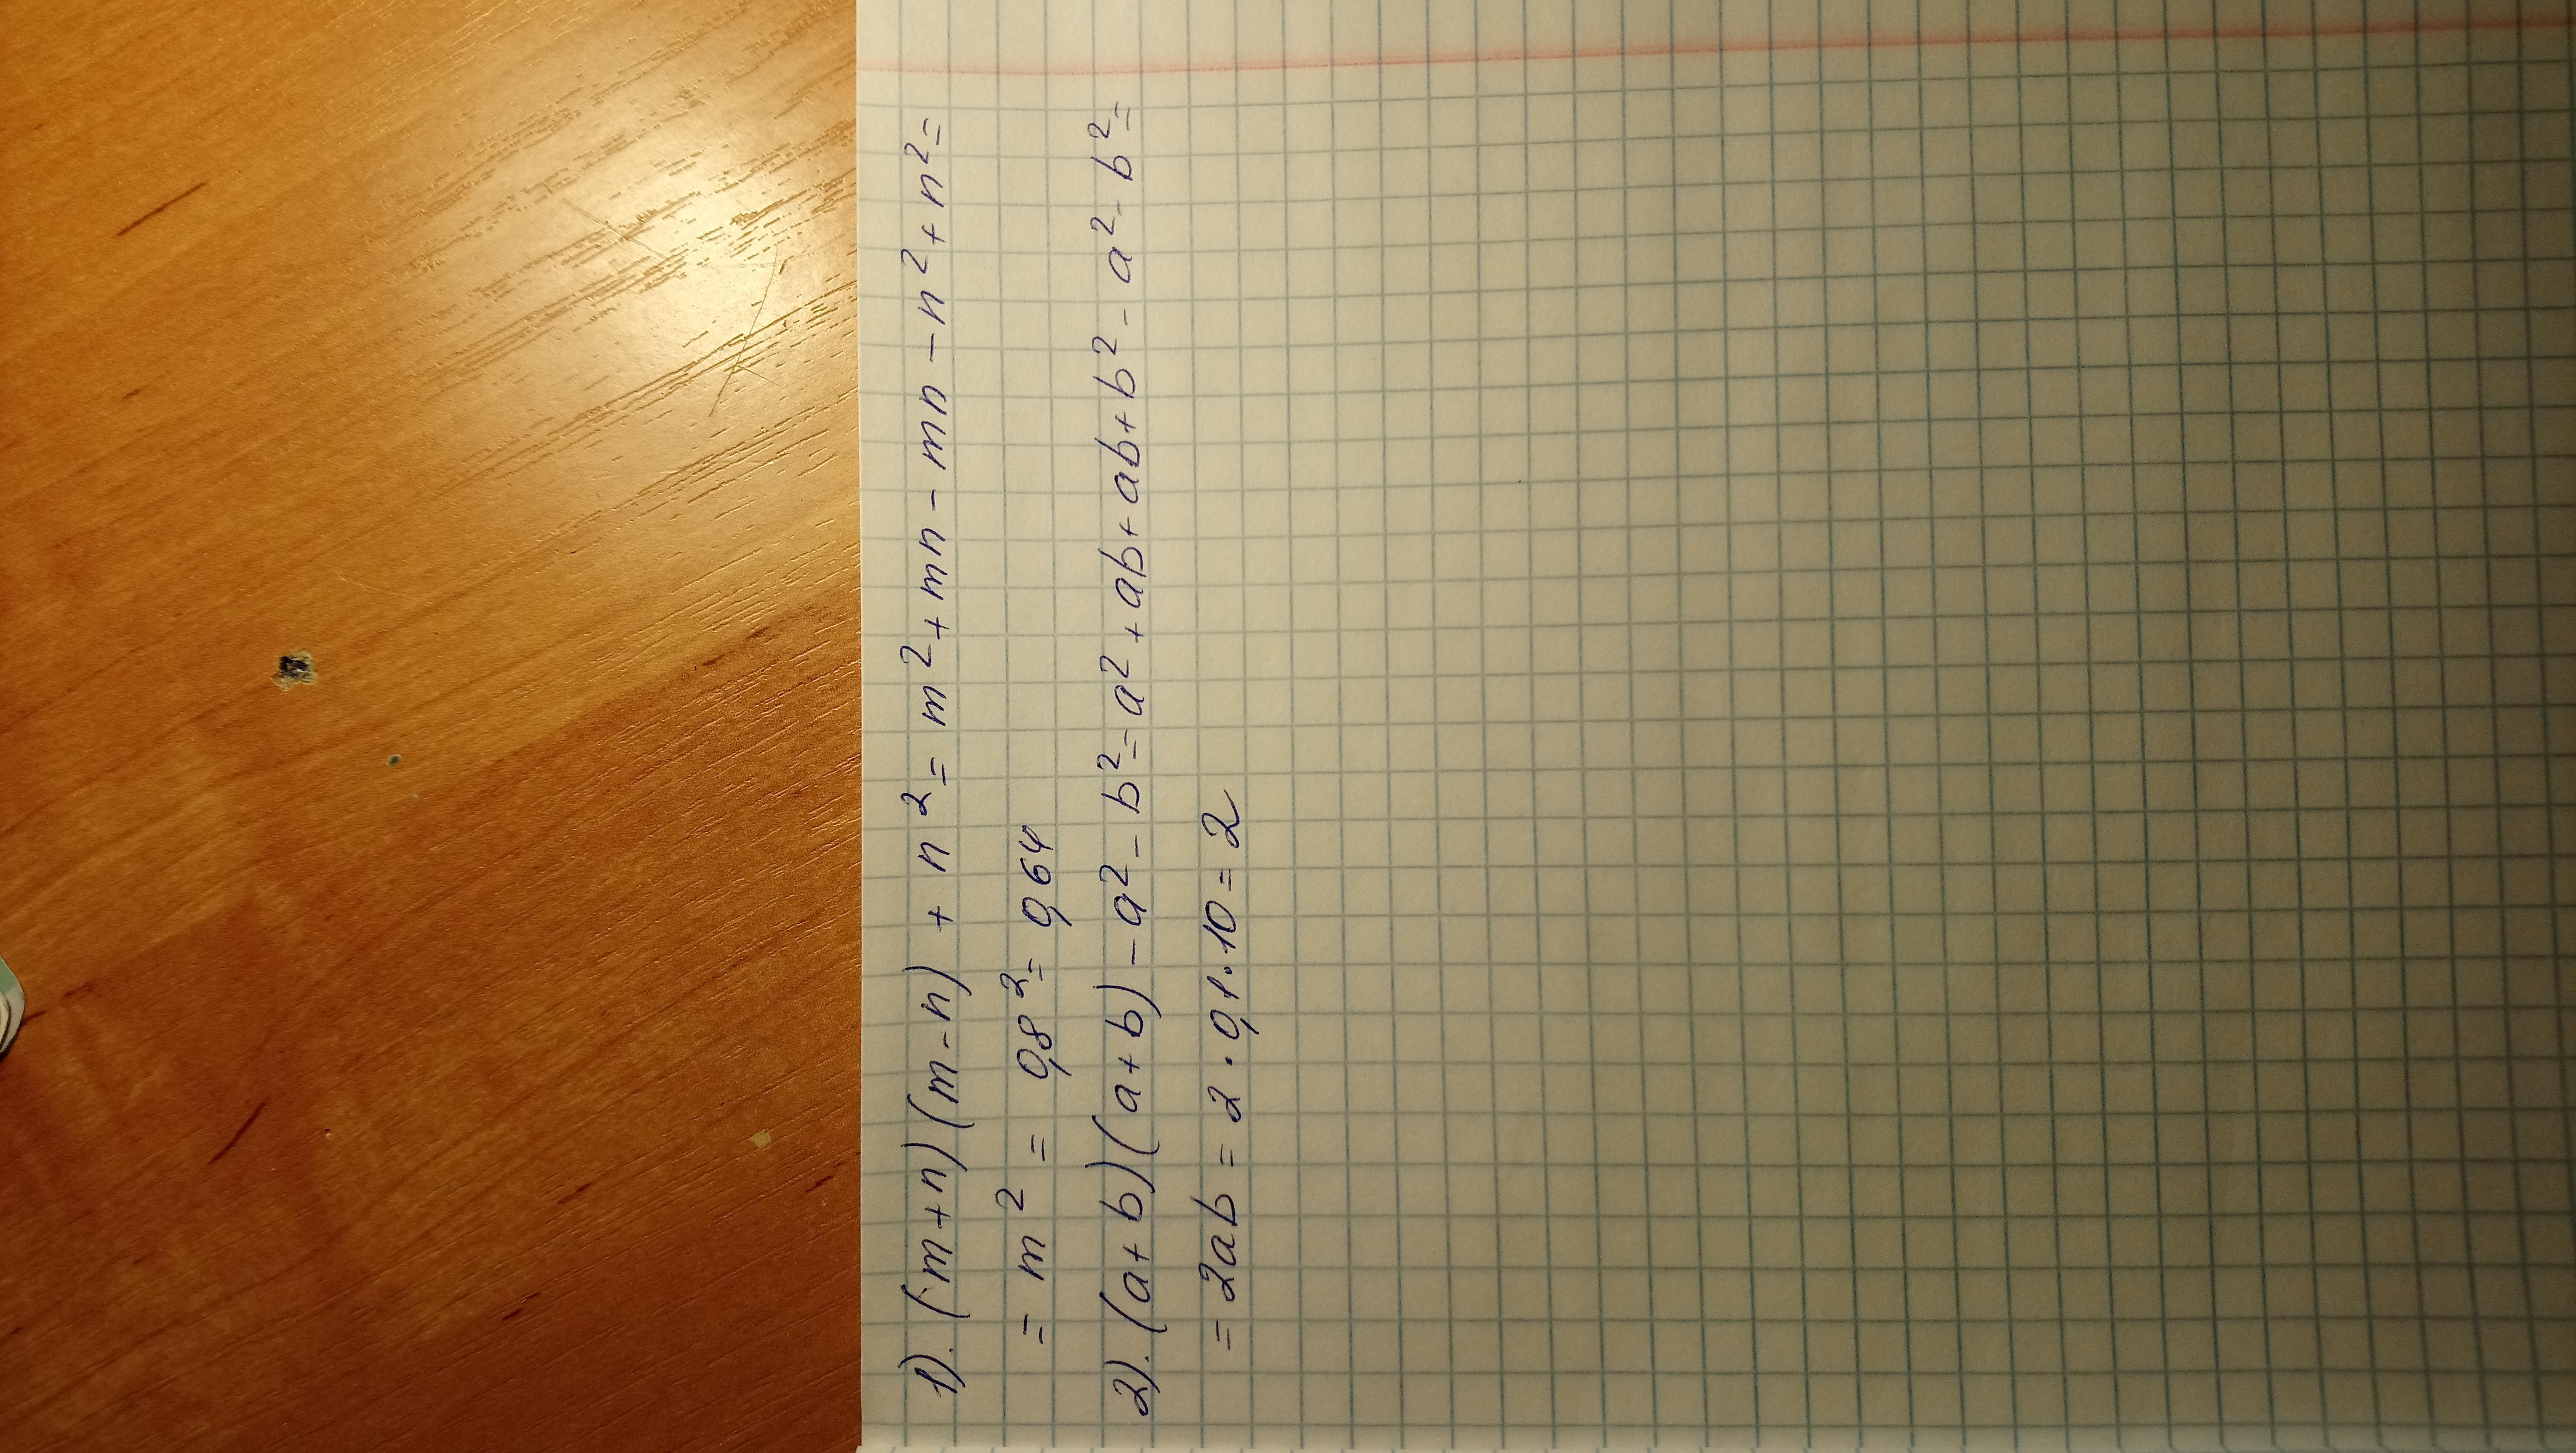 1). (m+n)(m-n) + n² = m² + mn - mn - n² + n² =
= m² = 0,8² = 0,64
2). (a+b)(a+b) - a² - b² = a² + ab + ab + b² - a² - b² =
= 2ab = 2 · 0,1 · 10 = 2